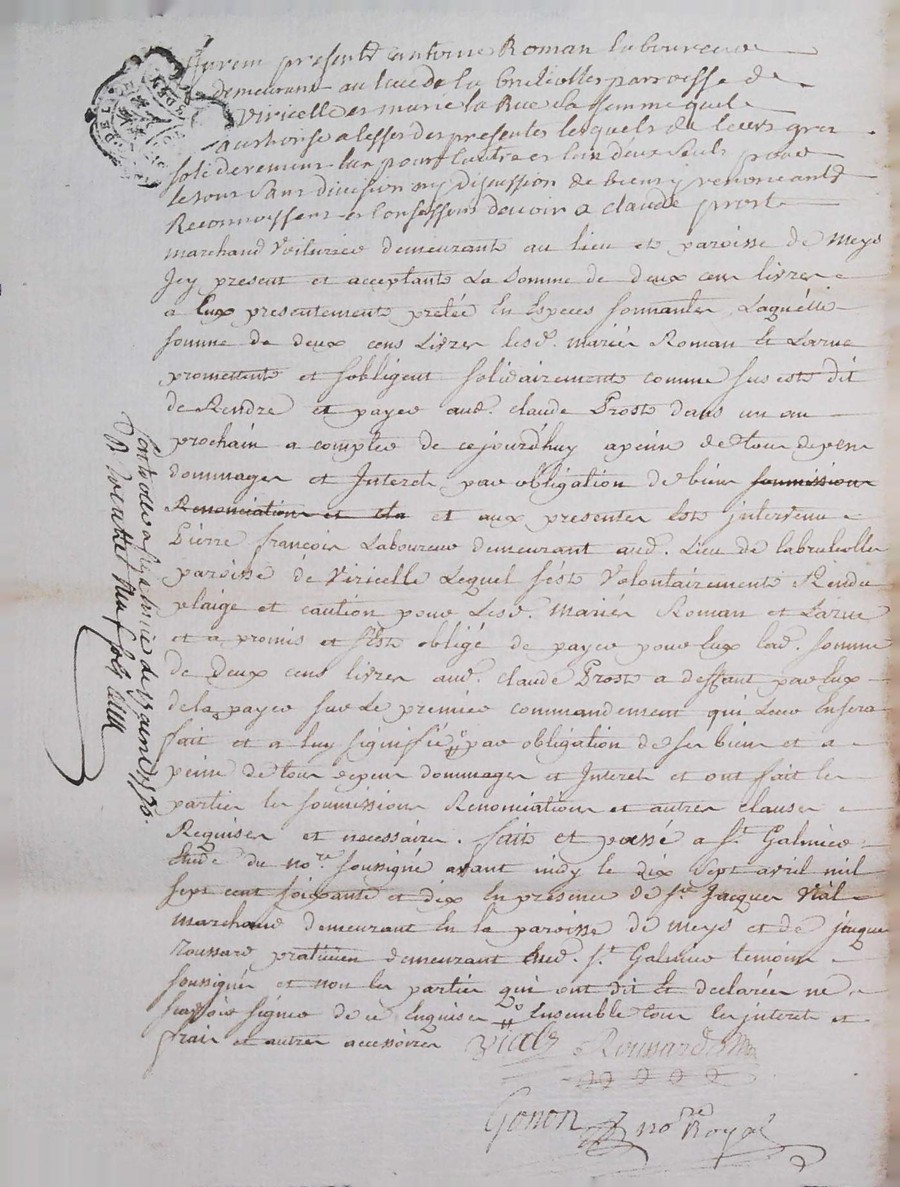 furent presents antoine Roman laboureur
demeurant au lieu de la brulioller parroisse de
Viricelle et marie la Rue sa femme quil
authorise a leffet des presentes lesquels de leurs grez
soliderement lun pour lautre et lun deux seuls pour
le tous sans division ny discussion de biens y renoncants
Reconnoissent et Confessent devoir a claude prost
marchand Voiturier demeurants au lieu et paroisse de meys
Icy present et acceptants La somme de deux cens livres
a Eux presentements pretée En Especes sonnantes, Laquelle
somme de deux cens Livres lesd. mariés Roman Et Larue
promettents et sobligent solidairements comme sus ests dit
de Rendre et payer aud. claude Prosts dans un an
prochain a compter de cejourdhuy a peine de tous depens
dommages et Interets par obligation de biens soumissions
Renonciations et cla et aux presentes Ests intervenu
Pierre françois Laboureur demeurant aud. Lieu de labrulioller
paroisse de Viricelle Lequel sests Volontairements Rendu
plaige et caution pour Lesd. mariés Roman et Larue
et a promis et sests obligé de payer pour Eux lad. somme
de Deux cens livres aud. claude Prosts a deffaut par Eux
de la payer sur Le premier commandement qui Leur En sera
fait et a luy signiffié par obligation de ses biens et a
peine de tous depens dommages et Interets et ont fait les
parties les soumissions Renonciations et autres clauses
Requises et necessaires. faits et passé a St. Galmier
Etude du nore. soussigné avant midy le dix Sept avril mil
sept cent soixante et dix En presence de sr. Jacques Vial
marchand demeurant En la paroisse de meys et de jacques
roussard praticien demeurant aud. St. Galmier temoins
soussignés et non les parties qui ont dit Et declarées ne
scavoir signer de ce Enquises Ensemble tous les interets et
frais et autres accessoires Vial Roussard
Gonon nore Royal